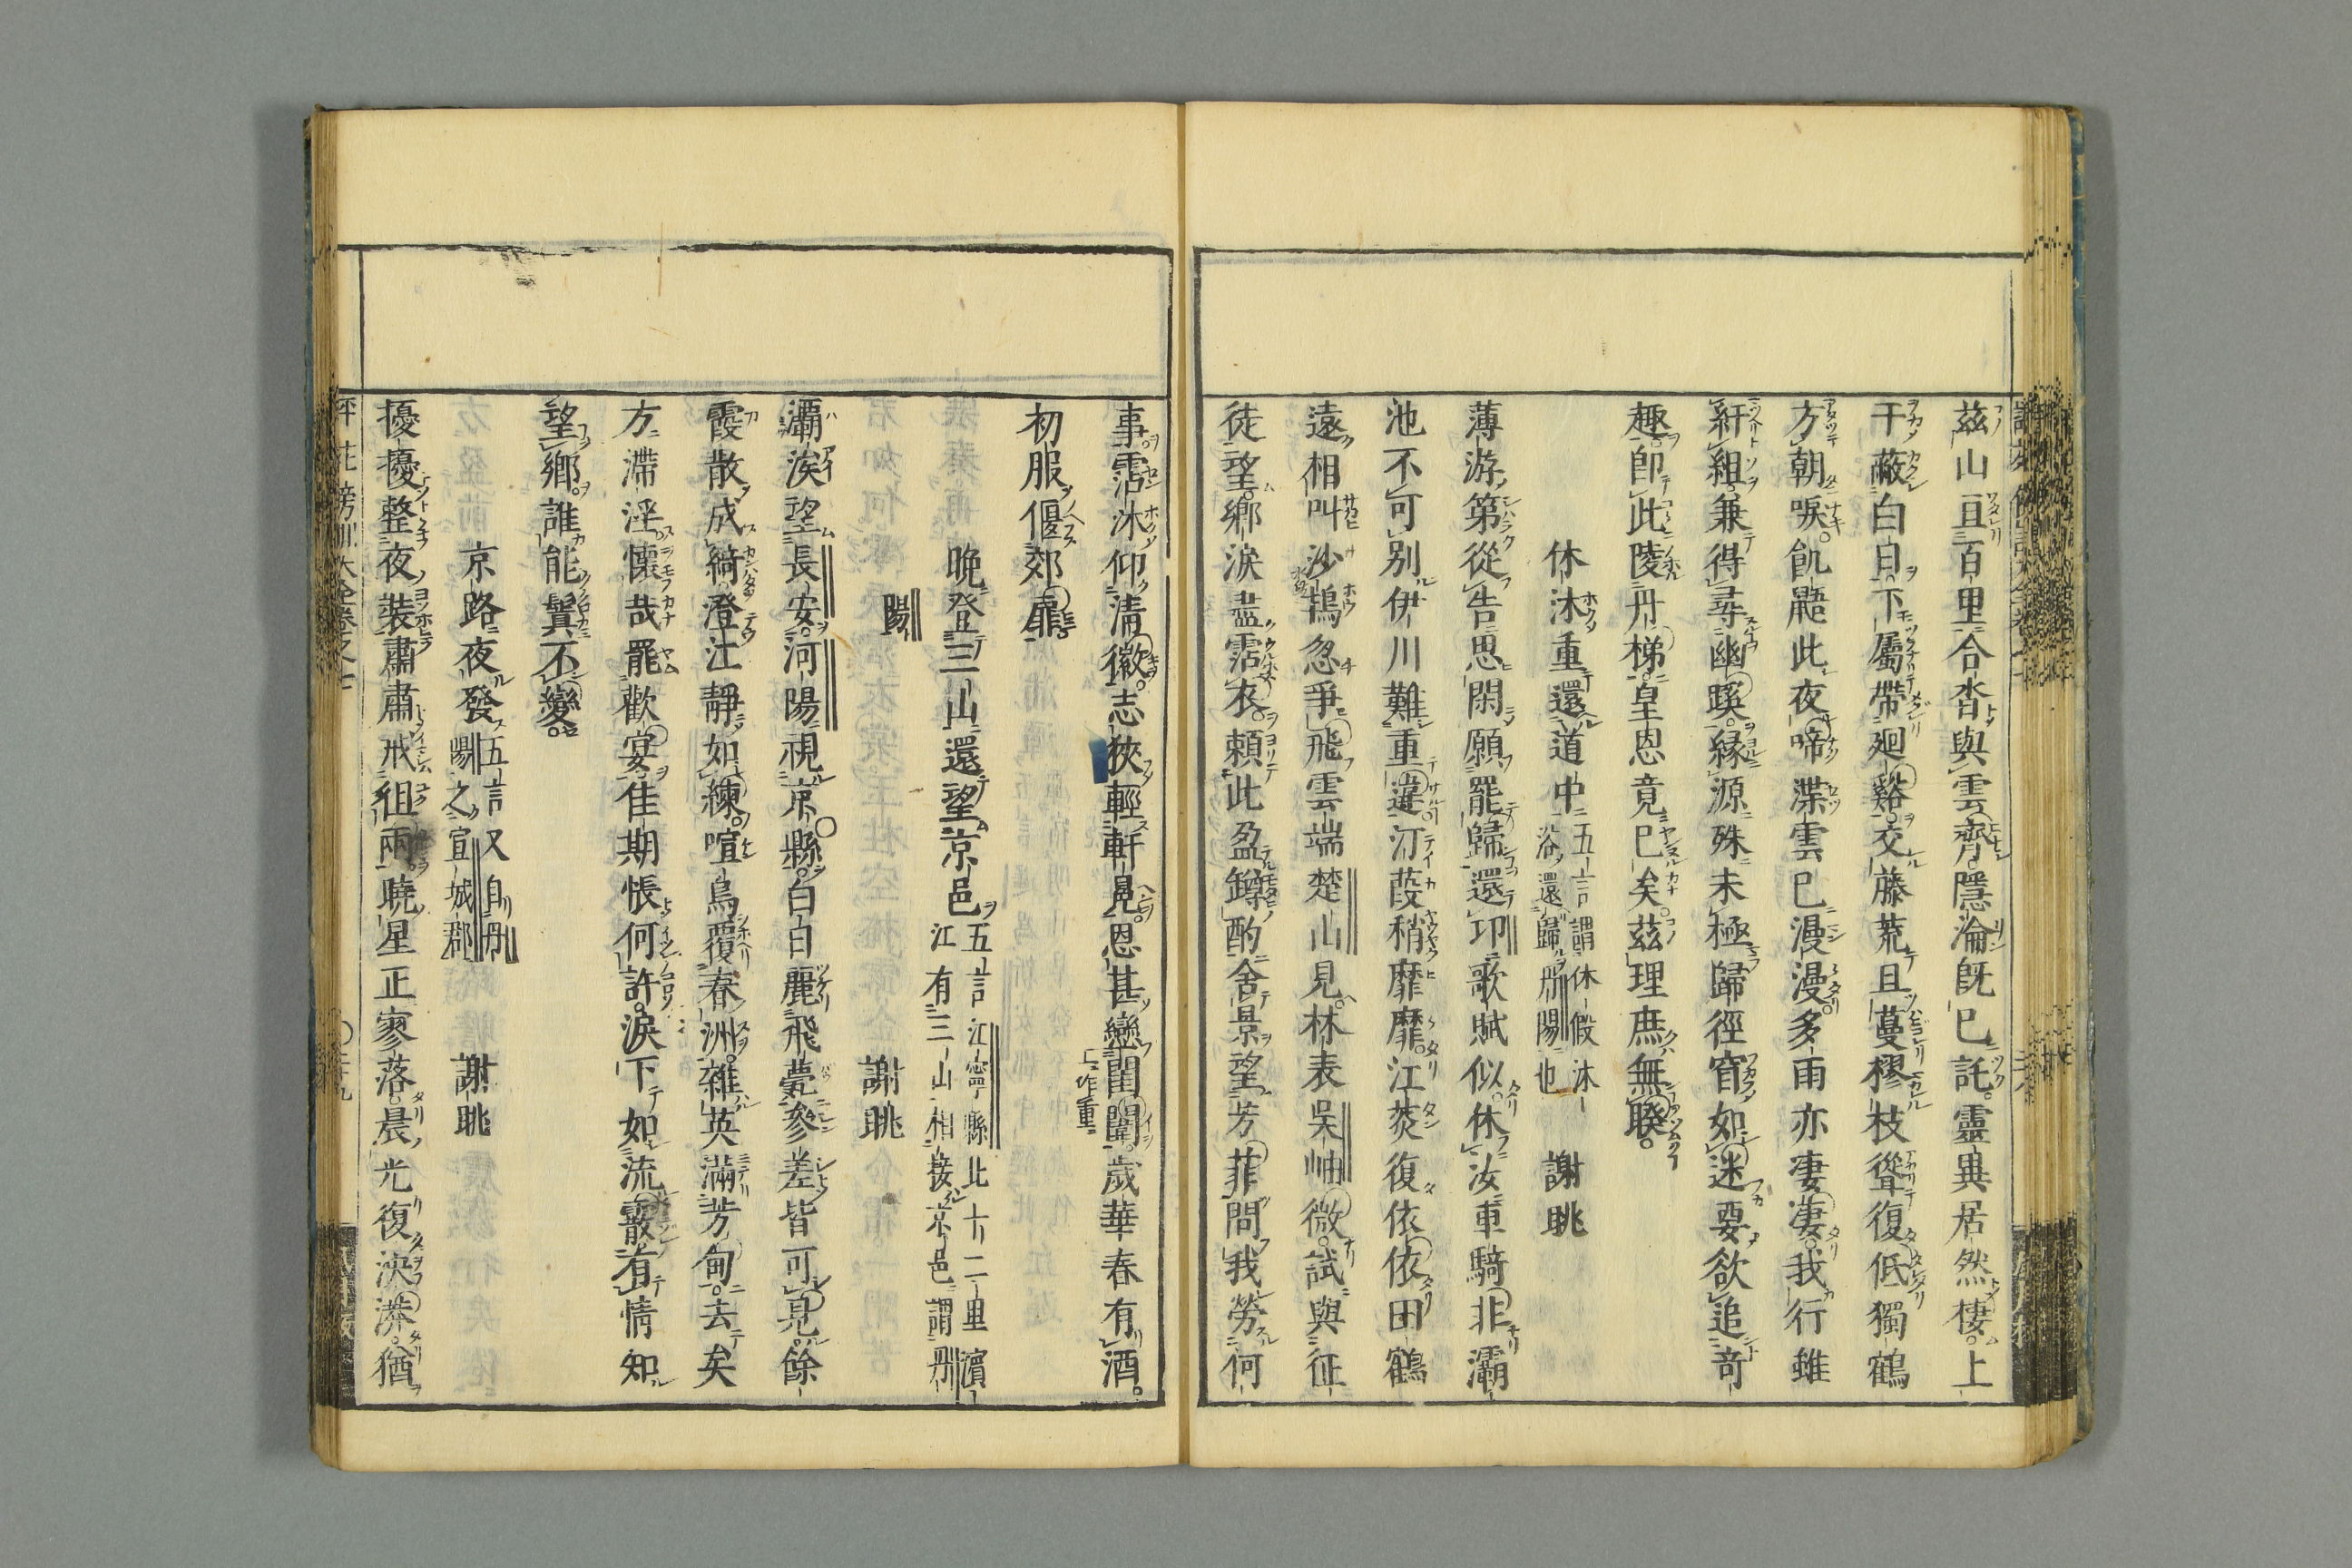 茲山亘百里合沓與雲齊隱淪既已託靈異居然棲上
干蔽白日下屬帶廻谿交藤荒且蔓樛枝聳復低獨鶴
方朝唳飢鼯此夜啼渫雲已漫漫多雨亦凄凄我行雖
紆組兼得尋幽蹊縁源殊未極歸徑窅如迷要欲追竒
趣即此陵丹梯皇恩竟已矣茲理庶無睽
休沐重還道中 五言謂休假沐
浴還歸丹陽也 謝眺
薄游第從告思閑願罷歸還卭歌賦似休汝車騎非灞
池不可別伊川難重違汀葭稍靡靡江菼復依依田鶴
遠相叫沙鴇忽爭飛雲端楚山見林表吳岫微試與征
徒望鄉淚盡霑衣頼此盈罇酌含景望芳菲問我勞何
事霑沐仰清徽志狹輕軒冕恩甚戀閨闈歲華春有酒
一作重
初服偃郊扉
晩登三山還望京邑 五言江寧縣北十二里濵
江有三山相接京邑謂丹
陽 謝眺
灞涘望長安河陽視京縣白日麗飛甍參差皆可見餘
霞散成綺澄江靜如練喧鳥覆春洲雜英滿芳甸去矣
方滯淫懷哉罷歡宴佳期悵何許淚下如流霰有情知
望鄉誰能鬒不變
京路夜發 五言又自丹
陽之宣城郡 謝眺
擾擾整夜裝肅肅戒徂兩曉星正寥落晨光復泱漭猶